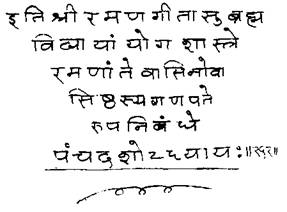 इति श्री रमण गीतासु ब्रह्म
विद्यायां योग शास्त्रे
रमणांते वासिनोवा
सिष्ठस्य गणपते
रुपनिबंधे
पंचदशोऽध्यायः॥